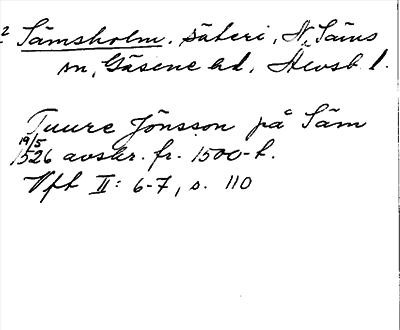 2 Sämsholm. säteri, N. Säms
sn, Gäsene hd, Älvsb. l.
Tuure Jönsson på Säm
19/5
1526 avskr. fr. 1500-t.
Vft II: 6-7, s. 110